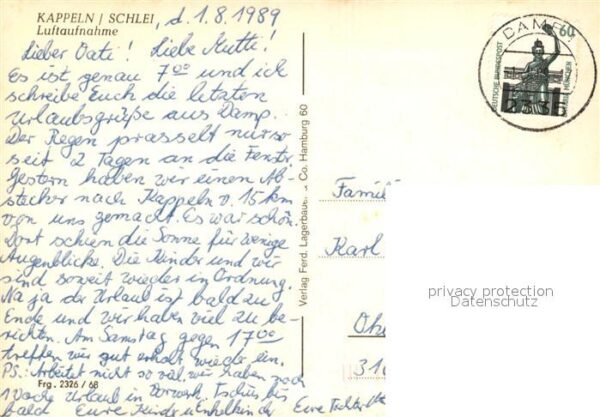 KAPPELN / SCHLEI, d. 1.8.1989
Luftaufnahme
Lieber Vati! Liebe Mutti!
Es ist genau 7⁰⁰ und ich
schreibe Euch die letzten
Urlaubsgrüße aus Damp.
Der Regen prasselt nur so
seit 2 Tagen an die Fenster.
Gestern haben wir einen Ab-
stecher nach Kappeln v. 15 km
von uns gemacht. Es war schön.
Dort schien die Sonne für wenige
Augenblicke. Die Kinder und wir
sind soweit wieder in Ordnung.
Na ja der Urlaub ist bald zu
Ende und wir haben viel zu be-
richten. Am Samstag gegen 17⁰⁰
treffen wir gut erholt wieder ein.
PS.: Arbeitet nicht so viel, wir haben noch
1 Woche Urlaub in Vorwerk. Tschüs bis
bald Eure Kinder u. Enkelkinder Eure Tochter
Frg. 2326 / 68
Verlag Ferd. Lagerbauer & Co. Hamburg 60
DAMP
2335
60
DEUTSCHE BUNDESPOST
MÜNCHEN
Famil
Karl
privacy protection
Datenschutz
Oh
31